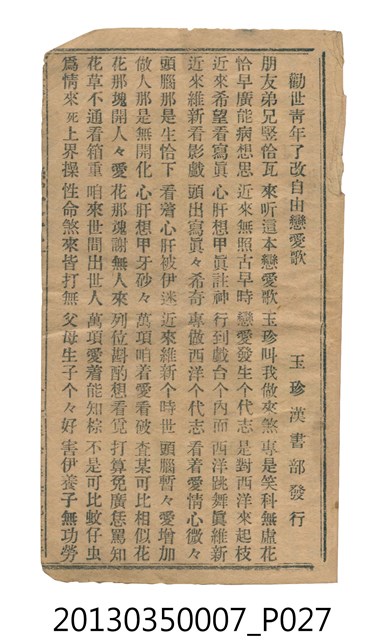 勸世青年了改自由戀愛歌
玉珍漢書部發行
朋友弟兄竪恰瓦 來听這本戀愛歌 玉珍叫我做來煞 專是笑科無虛花
恰早廣能病想思 近來無照古早時 戀愛發生个代志 是對西洋來起枝
近來希望看寫眞 心肝想甲眞註神 行到戲台个內面 西洋跳舞眞維新
近來維新看影戲 頭出寫眞々希奇 專做西洋个代志 看着愛情心微々
頭腦那是生恰下 看著心肝被伊迷 近來維新个時世 頭腦暫々愛增加
做人那是無開化 心肝想甲牙砂々 萬項咱着愛看破 查某可比相似花
花那塊開人々愛 花那塊謝無人來 列位斟酌想看覓 打算免廣恁罵知
花草不通看箱重 咱來世間出世人 萬項愛着能知棕 不是可比蚊仔虫
爲情來死上界操 性命煞來皆打無 父母生子个々好 害伊養子無功勞
20130350007_P027